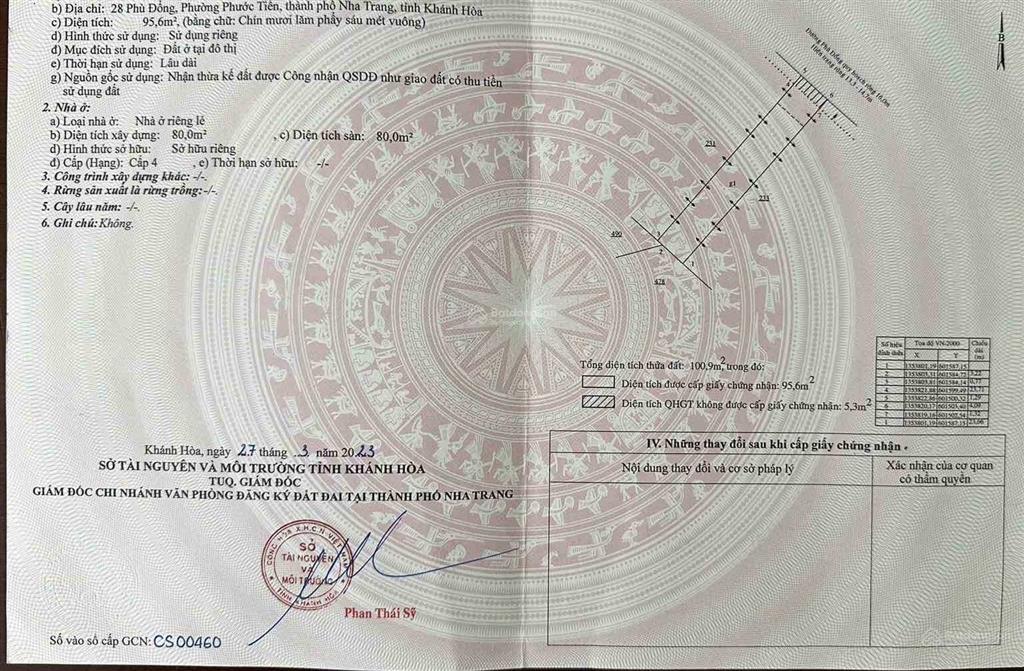 b) Địa chỉ: 28 Phù Đổng, Phường Phước Tiến, thành phố Nha Trang, tỉnh Khánh Hòa
c) Diện tích: 95,6m², (bằng chữ: Chín mươi lăm phẩy sáu mét vuông)
d) Hình thức sử dụng: Sử dụng riêng
đ) Mục đích sử dụng: Đất ở tại đô thị
e) Thời hạn sử dụng: Lâu dài
g) Nguồn gốc sử dụng: Nhận thừa kế đất được Công nhận QSDĐ như giao đất có thu tiền
sử dụng đất
2. Nhà ở:
a) Loại nhà ở: Nhà ở riêng lẻ
b) Diện tích xây dựng: 80,0m² , c) Diện tích sàn: 80,0m²
d) Hình thức sở hữu: Sở hữu riêng
đ) Cấp (Hạng): Cấp 4 , e) Thời hạn sở hữu: -/-
3. Công trình xây dựng khác: -/-.
4. Rừng sản xuất là rừng trồng:-/-.
5. Cây lâu năm: -/-.
6. Ghi chú: Không.
Khánh Hòa, ngày 27 tháng 3 năm 2023
SỞ TÀI NGUYÊN VÀ MÔI TRƯỜNG TỈNH KHÁNH HÒA
TUQ. GIÁM ĐỐC
GIÁM ĐỐC CHI NHÁNH VĂN PHÒNG ĐĂNG KÝ ĐẤT ĐAI TẠI THÀNH PHỐ NHA TRANG
CỘNG HÒA X.H.C.N VIỆT NAM
SỞ
TÀI NGUYÊN
VÀ
MÔI TRƯỜNG
TỈNH KHÁNH HÒA
Phan Thái Sỹ
Số vào sổ cấp GCN: CS00460
B
Đường Phù Đổng quy hoạch rộng 16.0m
Hiện trạng rộng 13.5 - 14.7m
5
6
251
91
233
490
3
2
1
478
Tổng diện tích thửa đất: 100,9m², trong đó:
Diện tích được cấp giấy chứng nhận: 95,6m²
Diện tích QHGT không được cấp giấy chứng nhận: 5,3m²
Số hiệu đỉnh thửa Toạ độ VN-2000 Chiều dài (m)
X Y
1 1353801,19 601587,15
IV. Những thay đổi sau khi cấp giấy chứng nhận
Nội dung thay đổi và cơ sở pháp lý
Xác nhận của cơ quan
có thẩm quyền
Batdongsan
Batdongsan